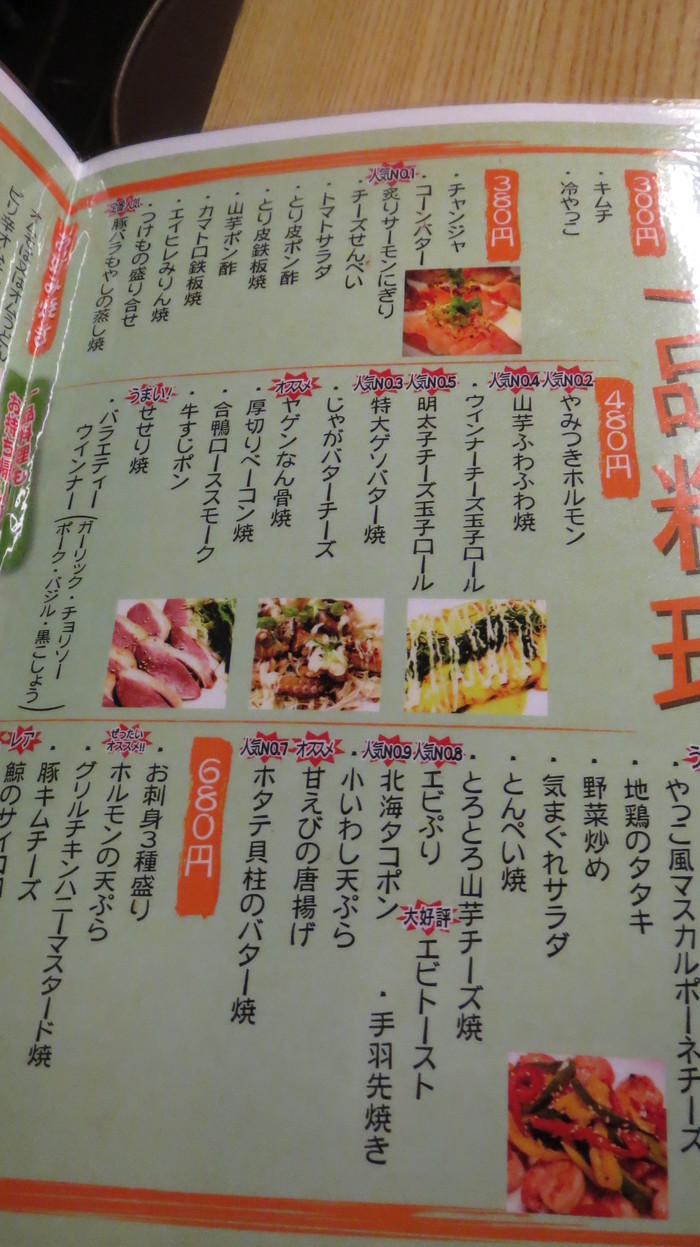 一品料理
300円
・キムチ
・冷やっこ
380円
・チャンジャ
・コーンバター
人気NO.1
炙りサーモンにぎり
・チーズせんべい
・トマトサラダ
・とり皮ポン酢
・とり皮鉄板焼
・山芋ポン酢
・カマトロ鉄板焼
・エイヒレみりん焼
・つけもの盛り合せ
豚バラもやしの蒸し焼
480円
人気NO.2
やみつきホルモン
人気NO.4
山芋ふわふわ焼
・ウィンナーチーズ玉子ロール
人気NO.5
明太子チーズ玉子ロール
人気NO.3
特大ゲソバター焼
・じゃがバターチーズ
オススメ
ヤゲンなん骨焼
・厚切りベーコン焼
・合鴨ローススモーク
・牛すじポン
うまい!
せせり焼
・バラエティー
ウインナー(ガーリック・チョリソー
ポーク・バジル・黒こしょう)
やっこ風マスカルポーネチーズ
・地鶏のタタキ
・野菜炒め
・気まぐれサラダ
・とんぺい焼
・とろとろ山芋チーズ焼
人気NO.8
エビぷり
大好評
エビトースト
人気NO.9
北海タコポン
・手羽先焼き
・小いわし天ぷら
オススメ
甘えびの唐揚げ
人気NO.7
ホタテ貝柱のバター焼
680円
・お刺身3種盛り
ぜったいオススメ!!
ホルモンの天ぷら
・グリルチキンハニーマスタード焼
・豚キムチーズ
レア
鯨のサイコロ
一品料理も